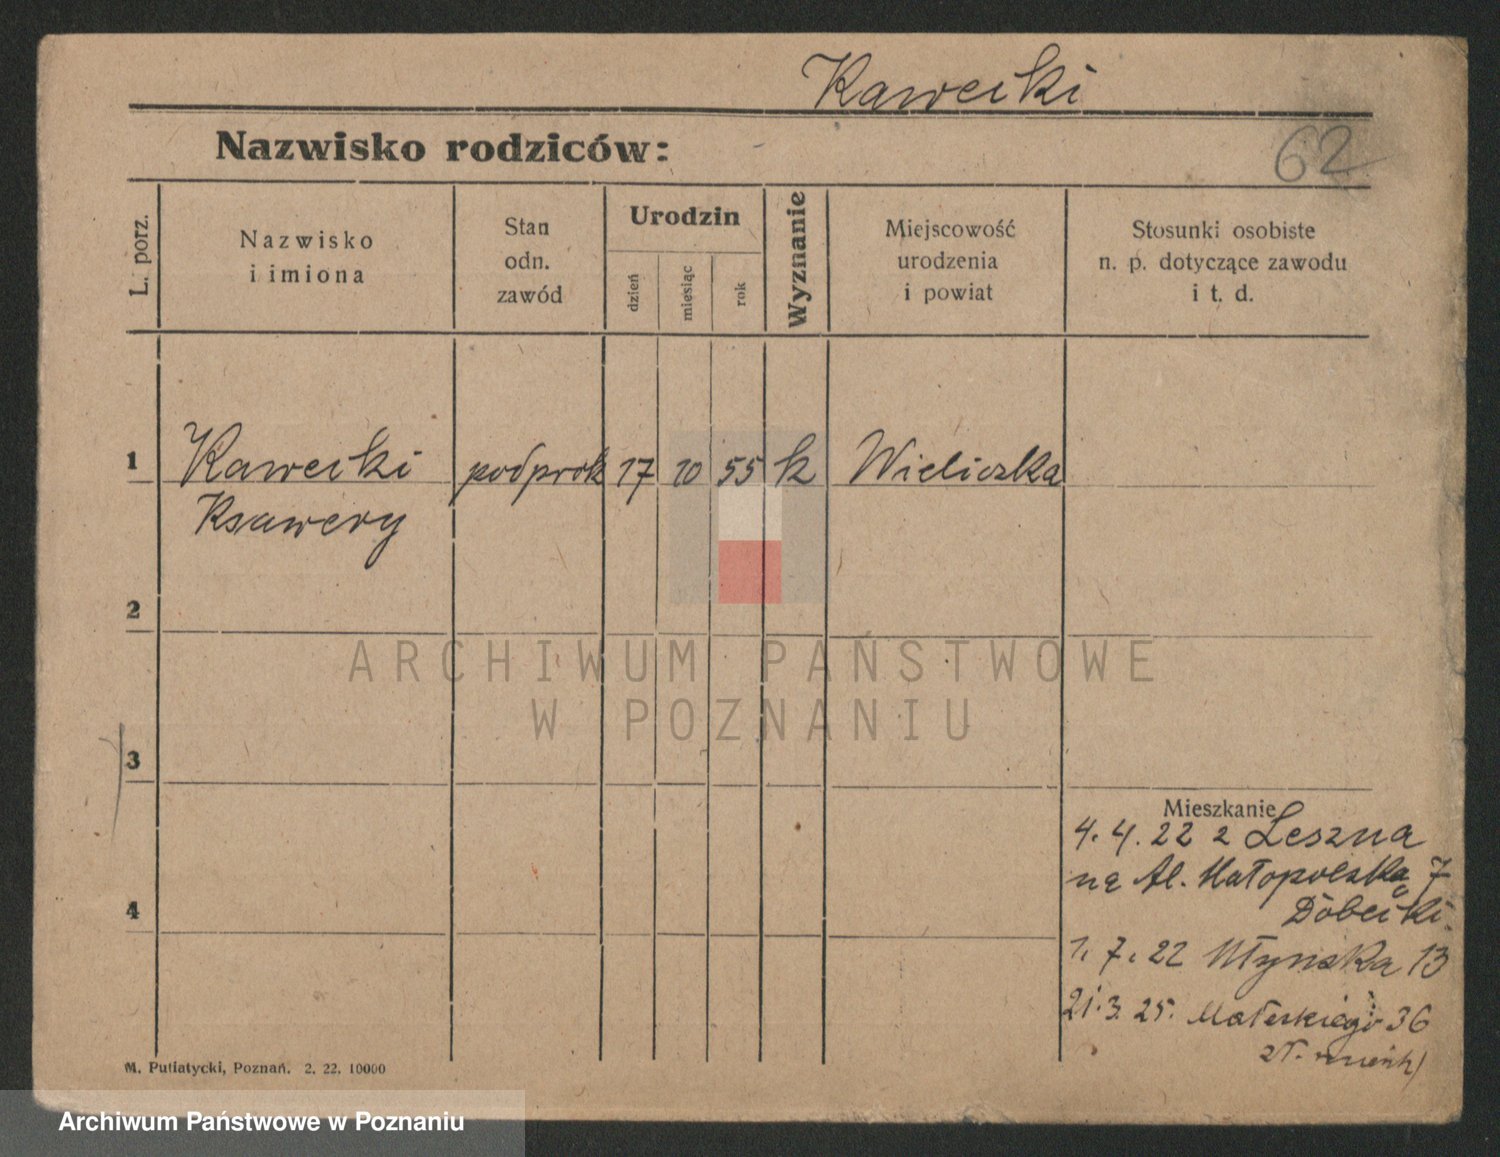 Kawecki
Nazwisko rodziców:
62
L. porz.
Nazwisko
i imiona
Stan
odn.
zawód
Urodzin
dzień
miesiąc
rok
Wyznanie
Miejscowość
urodzenia
i powiat
Stosunki osobiste
n. p. dotyczące zawodu
i t. d.
1 Kawecki podprok 17 10 55 k Wieliczka
Ksawery
2
3
4
Mieszkanie
4. 4. 22 z Leszna
na Al. Małopolska 7
Dobecki.
1. 7. 22 Młynska 13
21. 3. 25. 36
M. Putiatycki, Poznań. 2. 22. 10000
ARCHIWUM PAŃSTWOWE
W POZNANIU
Archiwum Państwowe w Poznaniu